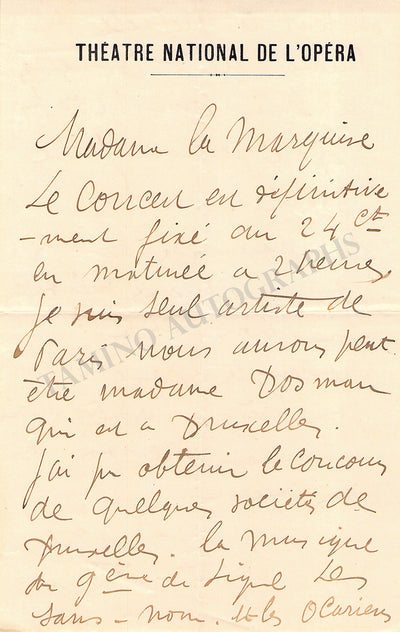 THÉATRE NATIONAL DE L'OPÉRA
Madame la Marquise
Le Concert est définitive
-ment fixé au 24 ct
en matinée a 2 heures
Je suis seul artiste de
Paris nous aurons peut
être madame Dosman
qui est a Bruxelles.
J'ai pu obtenir le concours
de quelques sociétés de
Bruxelles. la musique
du 9ème de ligne Les
sans-nom. et les Ocarines
TAMINO AUTOGRAPHS